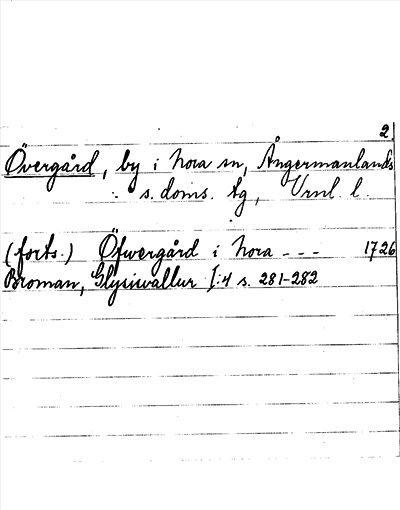 2.
Övergård, by i Nora sn, Ångermanlands
s. doms. tg, Vrnl. l.
(forts.) Öfwergård i Nora --- 1726
Broman, Glysisvallur I:4 s. 281-282